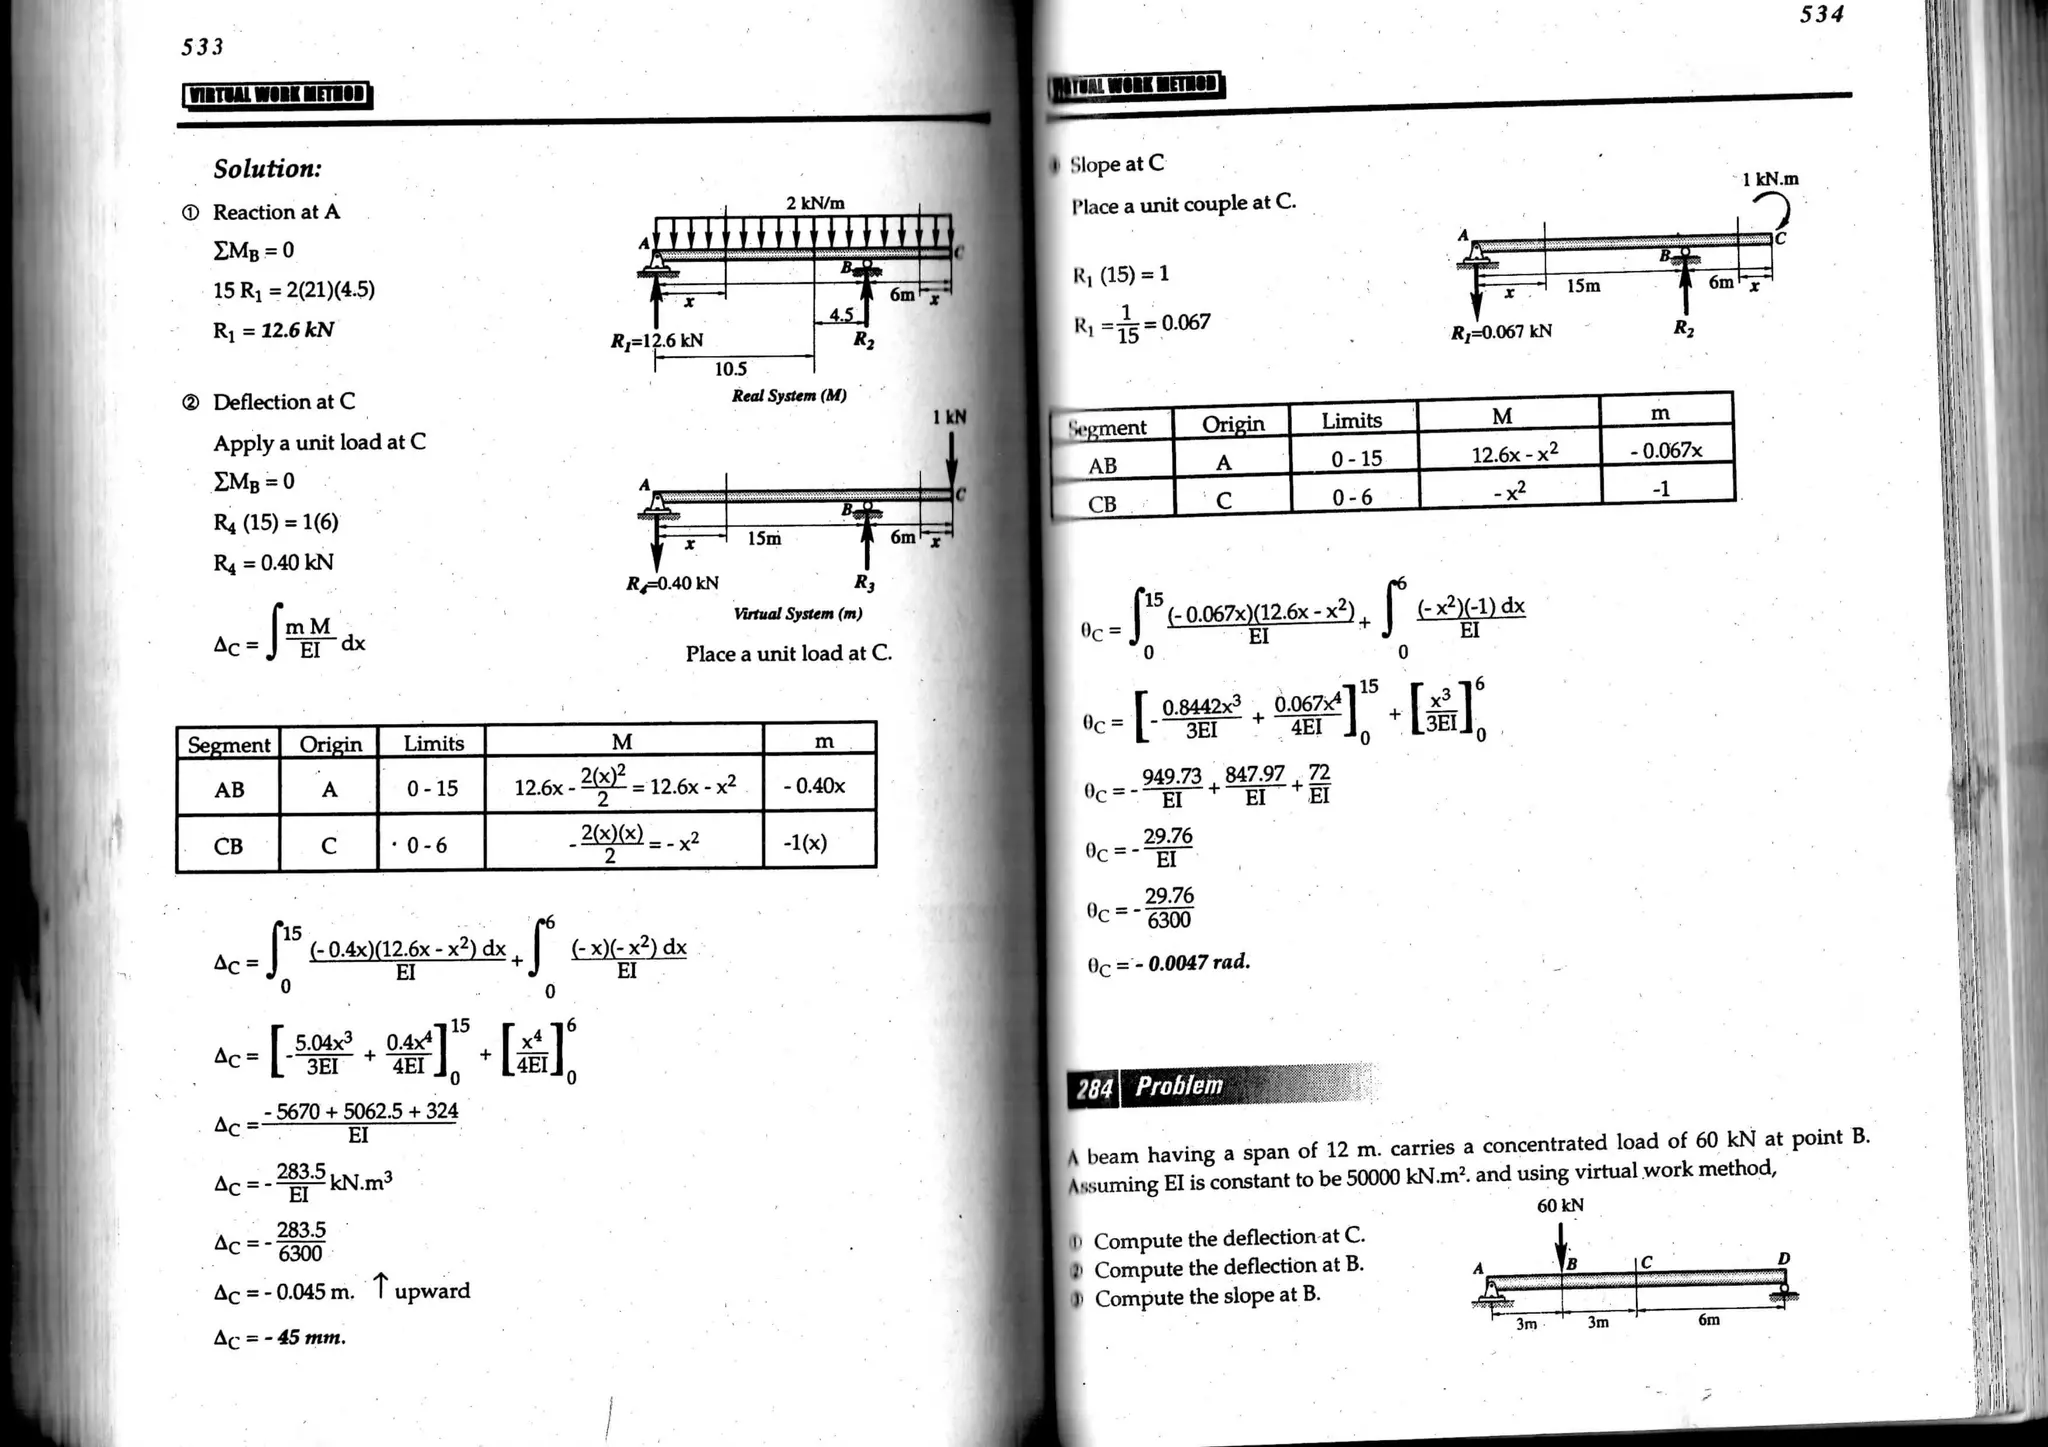 533
VIRTUAL WORK METHOD
Solution:
① Reaction at A
ΣMB = 0
15 R1 = 2(21)(4.5)
R1 = 12.6 kN
2 kN/m
A
B
C
x
6m
x
4.5
R1=12.6 kN
R2
10.5
Real System (M)
② Deflection at C
Apply a unit load at C
ΣMB = 0
R4 (15) = 1(6)
R4 = 0.40 kN
ΔC = ∫ (m M / EI) dx
1 kN
A
B
C
x
15m
6m
x
R4=0.40 kN
R3
Virtual System (m)
Place a unit load at C.
Segment Origin Limits M m
AB A 0 - 15 12.6x - 2(x)²/2 = 12.6x - x² - 0.40x
CB C 0 - 6 - 2(x)(x)/2 = - x² -1(x)
ΔC = ∫₀¹⁵ (- 0.4x)(12.6x - x²) dx / EI + ∫₀⁶ (- x)(- x²) dx / EI
ΔC = [- 5.04x³/3EI + 0.4x⁴/4EI]₀¹⁵ + [x⁴/4EI]₀⁶
ΔC = (- 5670 + 5062.5 + 324) / EI
ΔC = - 283.5/EI kN.m³
ΔC = - 283.5/6300
ΔC = - 0.045 m. ↑ upward
ΔC = - 45 mm.
534
VIRTUAL WORK METHOD
Slope at C
Place a unit couple at C.
R1 (15) = 1
R1 = 1/15 = 0.067
1 kN.m
A
B
C
x
15m
6m
x
R1=0.067 kN
R2
Segment Origin Limits M m
AB A 0 - 15 12.6x - x² - 0.067x
CB C 0 - 6 - x² -1
θC = ∫₀¹⁵ (- 0.067x)(12.6x - x²) / EI + ∫₀⁶ (- x²)(-1) dx / EI
θC = [- 0.8442x³/3EI + 0.067x⁴/4EI]₀¹⁵ + [x³/3EI]₀⁶
θC = - 949.73/EI + 847.97/EI + 72/EI
θC = - 29.76/EI
θC = - 29.76/6300
θC = - 0.0047 rad.
284 Problem
A beam having a span of 12 m. carries a concentrated load of 60 kN at point B.
Assuming EI is constant to be 50000 kN.m². and using virtual work method,
① Compute the deflection at C.
② Compute the deflection at B.
③ Compute the slope at B.
60 kN
A
B
C
D
3m
3m
6m